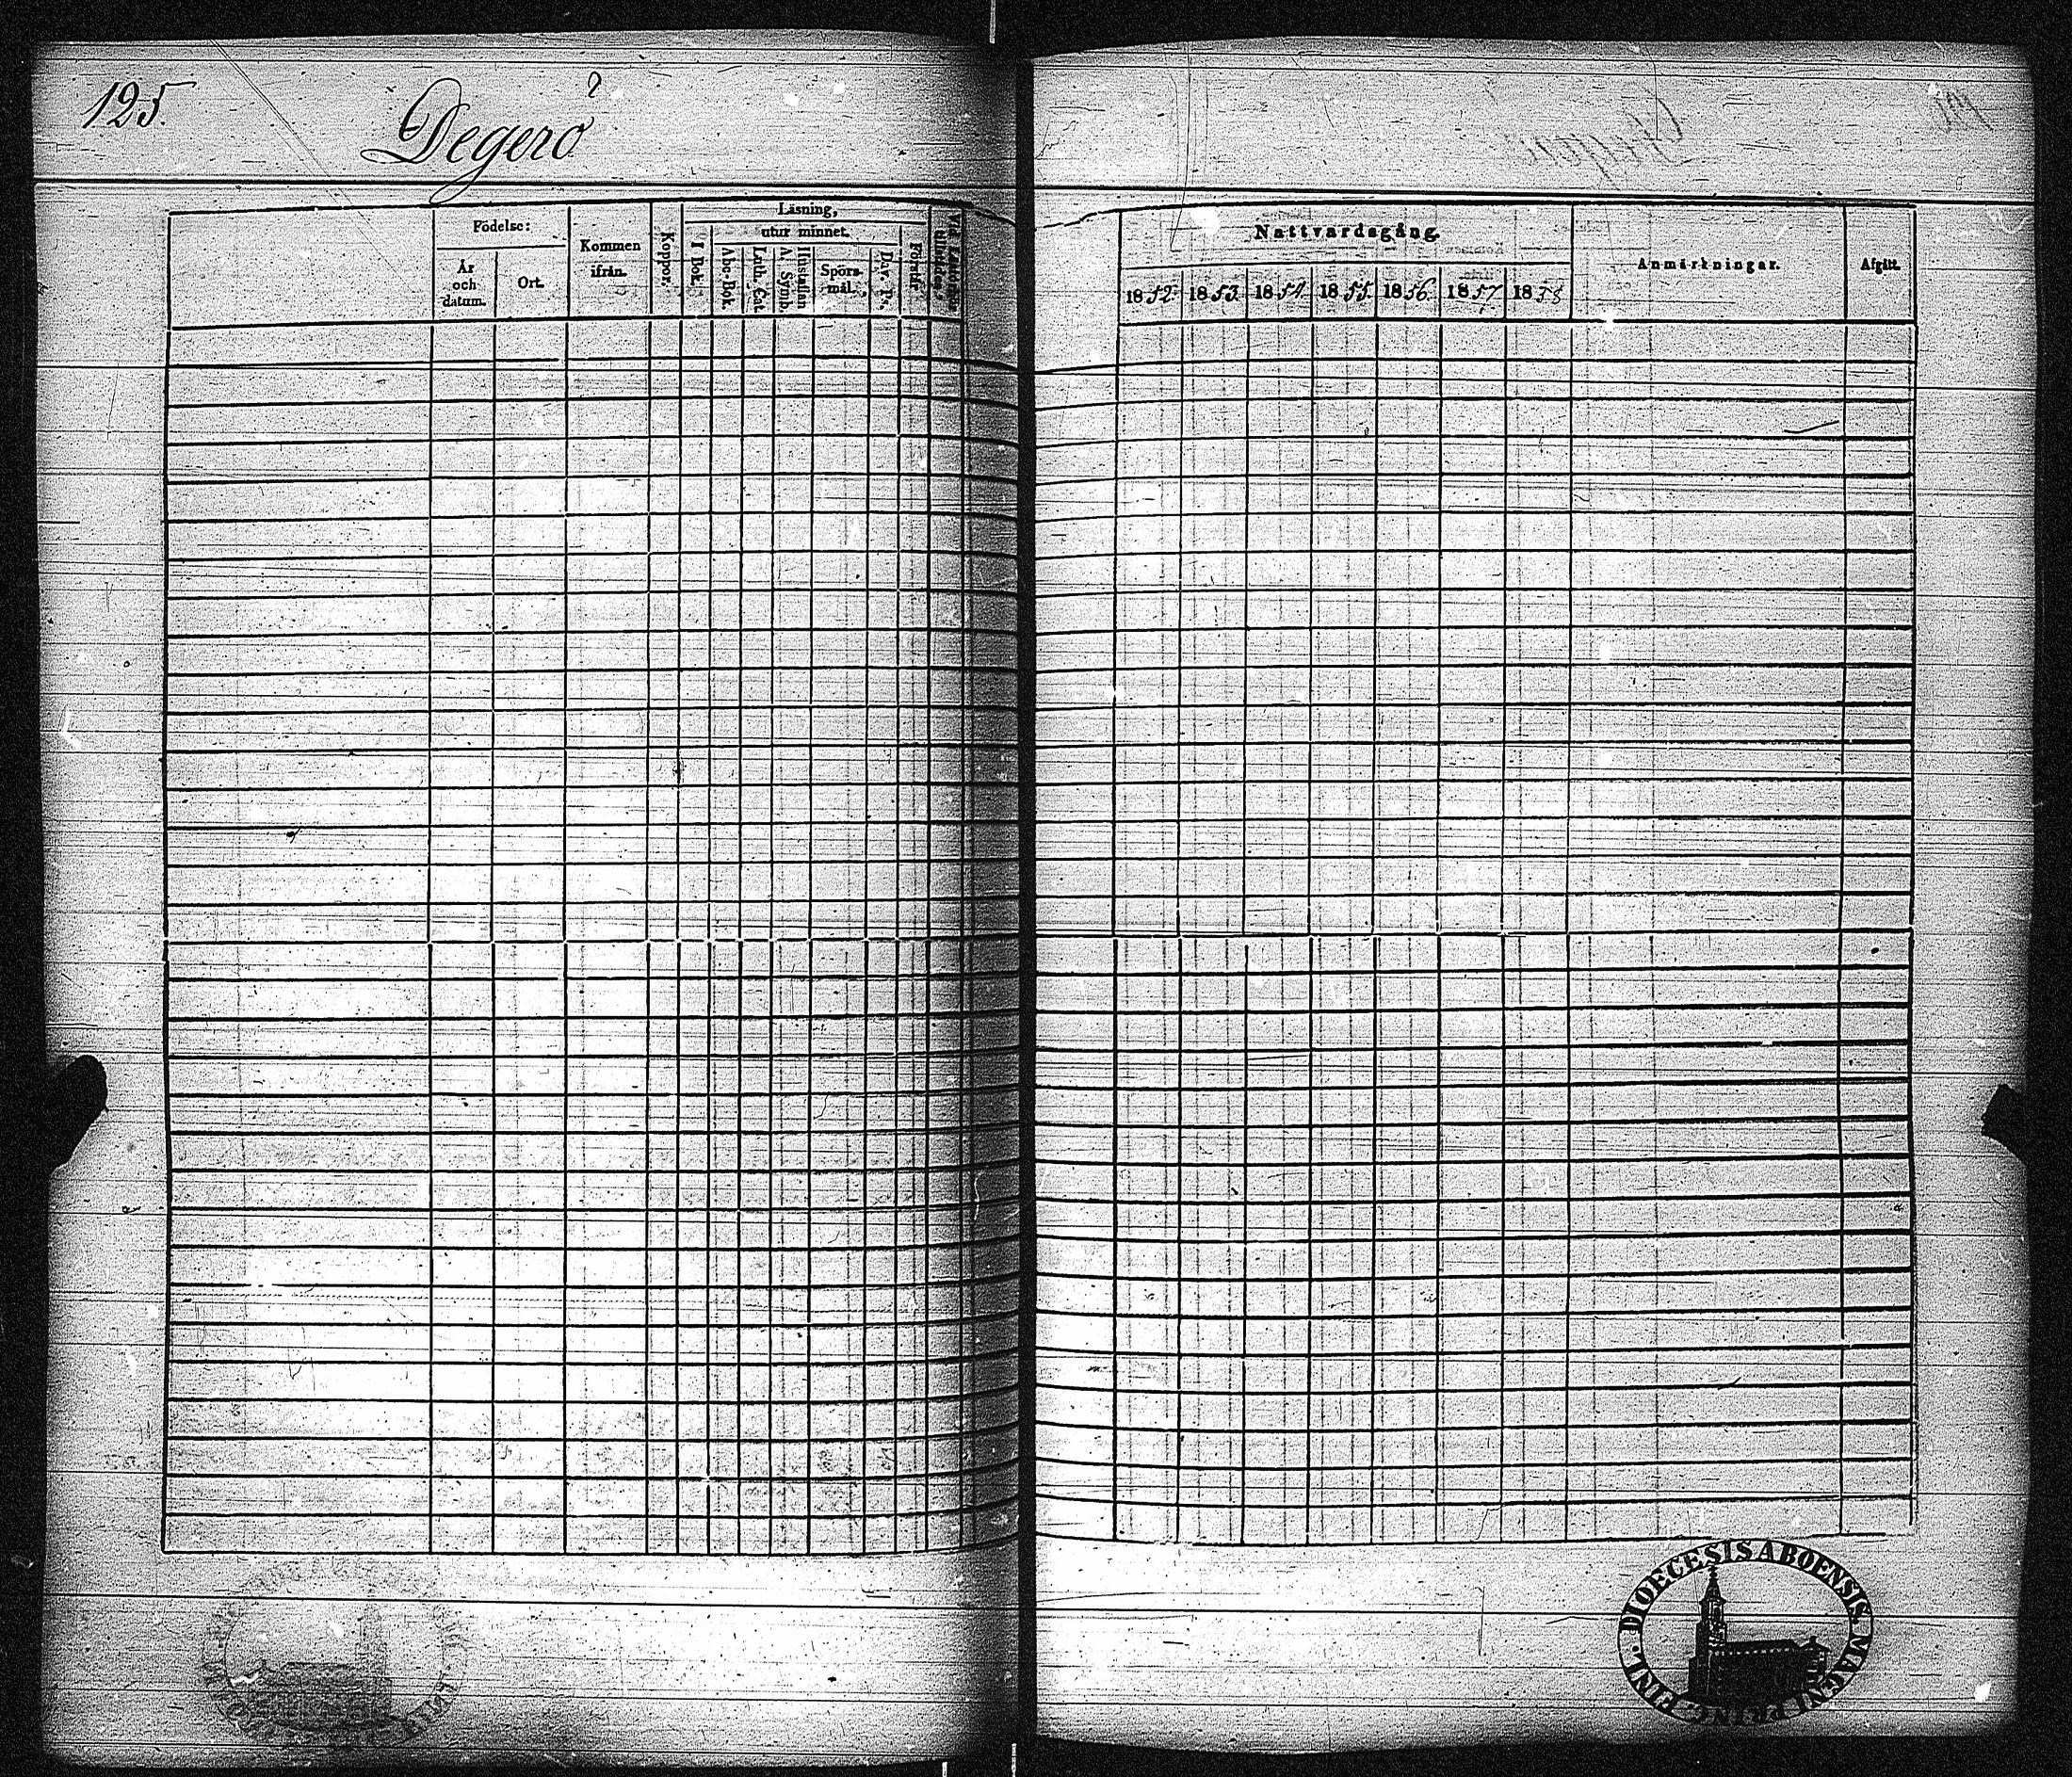 125.
Degerö
Födelse:
År
och
datum.
Ort.
Kommen
ifrån.
Koppor.
Läsning,
utur minnet.
I Bok.
Abc-Bok.
Luth. Cat.
Hustaflan
A. Symb.
Spörs-
mål.
Dav. Ps.
Förstår.
Nattvardsgång.
1852.
1853.
1854.
1855.
1856.
1857.
1858
Anmärkningar.
Afgått.
DIOECESIS ABOENSIS MAGNI PRINC. FINL.